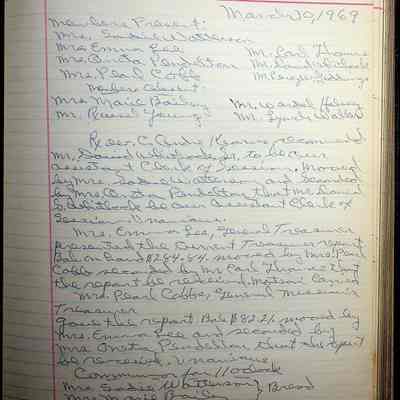 March 10, 1969
Members Present:
Mrs. Sadie Watterson
Mrs Emma Lee Mr. Earl Thomas
Mrs. Oneta Pendelton Mr. David
Mrs. Pearl Cobb Mr.
Members Absent:
Mrs Marie Bailey Mr.
Mr. Russel Young Mr. Walter
Rev. C. recommend
Mr. David Whitlock, Jr. to be our
assistant Clerk of Session. Moved
by Mrs. Sadie Watterson and seconded
by Mrs. Oneta Pendelton that Mr. David
be our Assistant Clerk of
Session. Unanimous.
Mrs. Emma Lee, General Treasurer
presented the Current Treasurer report
Bal. on hand $284.84. moved by Mrs. Pearl
Cobb seconded by Mr. Earl Thomas that
the report be received. Motion Carried
Mrs. Pearl Cobb, General
Treasurer
gave the report. Bal. $82.21 moved by
Mrs. Emma Lee and seconded by
Mrs Oneta Pendelton that the report
be received. Unanimous
Communion for 11 o'clock
Mrs Sadie Watterson } Bread
Mrs Marie Bailey